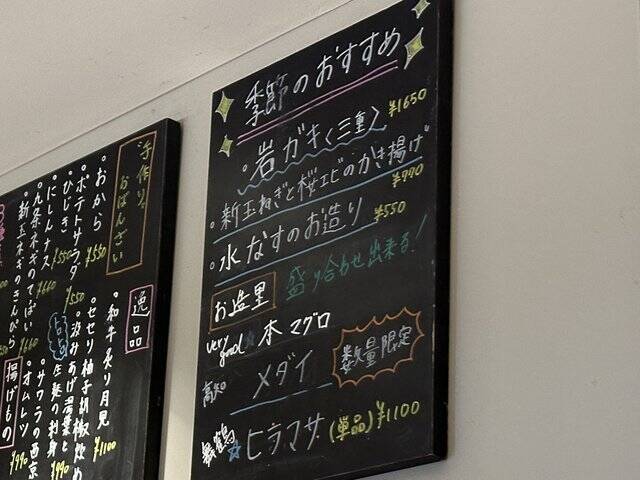 季節のおすすめ
岩ガキ〈三重〉 ¥1650
新玉ねぎと桜エビのかき揚げ ¥990
水なすのお造り ¥550
お造里 盛り合わせ出来る!
very good 本マグロ
高知 メダイ 数量限定
舞鶴 ヒラマサ (単品) ¥1100
手作り。おばんざい
おから ¥550
ポテトサラダ
ひじき ¥550
にしんナス
九条ネギのてっぱい ¥660
新玉ネギのきんぴら
逸品
和牛炙り月見 ¥1100
セセリ柚子胡椒炒め
汲みあげ湯葉と
生麩の刺身 ¥990
サワラの西京
オムレツ ¥990
揚げもの